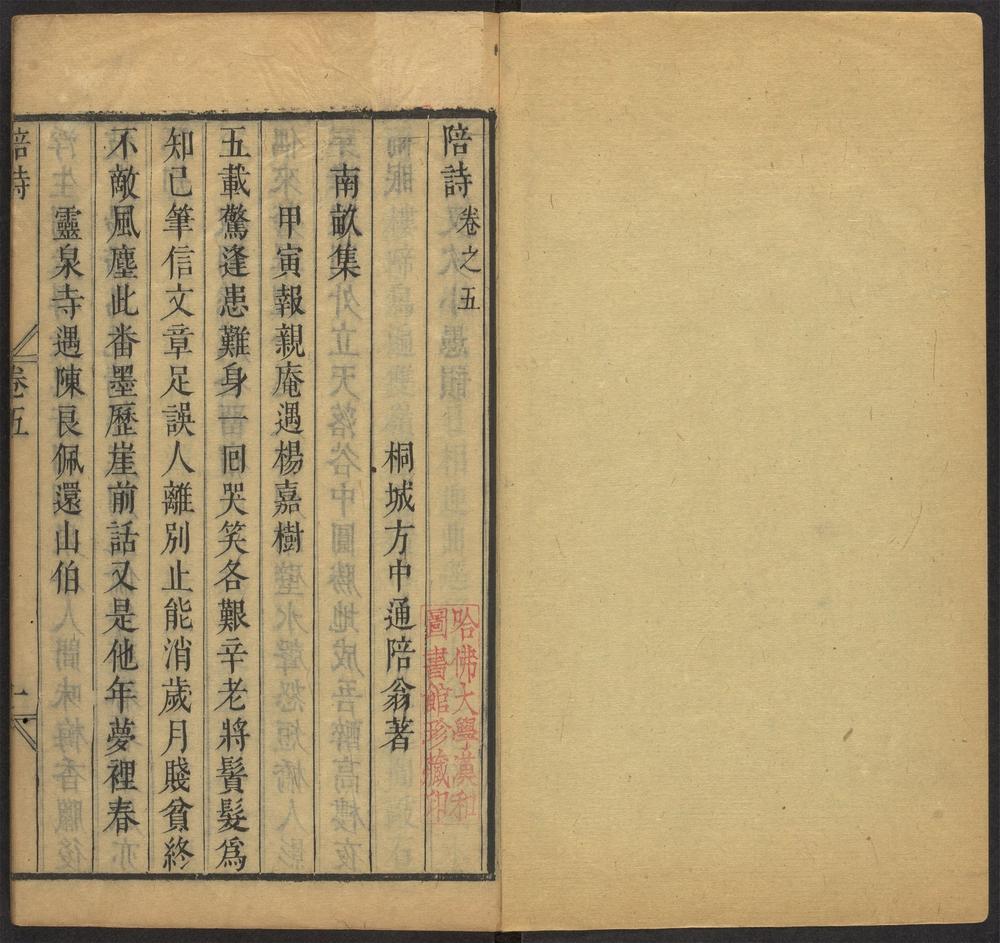 陪詩卷之五
桐城方中通陪翁著
南畝集
甲寅報親庵遇楊嘉樹
五載驚逢患難身一回哭笑各艱辛老將鬢髮爲
知已筆信文章足誤人離別止能消歲月賤貧終
不敵風塵此番墨歷崖前話又是他年夢裡春
靈泉寺遇陳良佩還山伯
陪詩 卷五 一
哈佛大學漢和
圖書館珍藏印